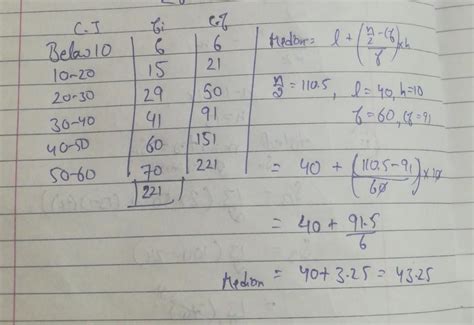 C.I fi c.f
Below 10 6 6
10-20 15 21
20-30 29 50
30-40 41 91
40-50 60 151
50-60 70 221
221
Median = l + (n/2 - cf / f) × h
n/2 = 110.5, l = 40, h = 10
f = 60, cf = 91
= 40 + (110.5 - 91 / 60) × 10
= 40 + 91.5 / 6
Median = 40 + 3.25 = 43.25